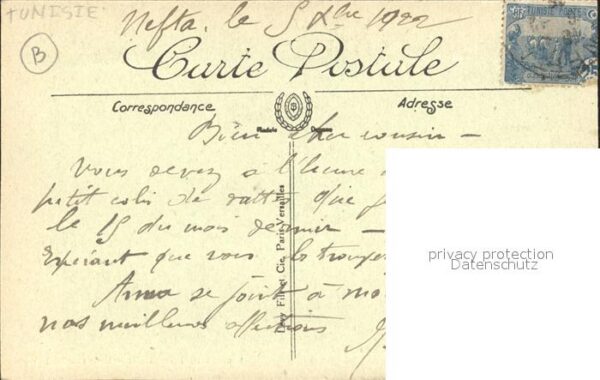 TUNISIE
Nefta, le 5 Xbre 1922
B
Carte Postale
Correspondance
Adresse
Modèle Depose
Bien cher cousin -
Vous devez à l'heure
petit colis de dattes que
le 15 du mois dernier -
Espérant que vous les
se joint à
nos meilleures affections
Fils et Cie, Paris-Versailles
privacy protection
Datenschutz